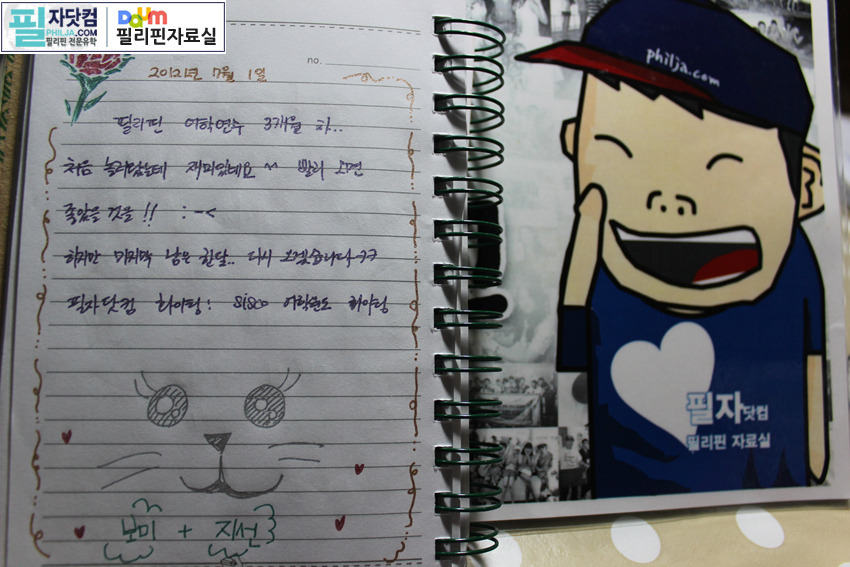 필 자닷컴
PHILJA.COM
필리핀 전문유학
Daum
필리핀자료실
no.
2012년 7월 1일
필리핀 어학연수 3개월 차..
처음 놀러왔는데 재미있네요 ^^ 빨리 오면
좋았을 것을 !! :-<
하지만 마지막 남은 한달.. 다시
필자닷컴 화이팅! SISCO 어학원도 화이팅
보미 + 지선
philja.com
필자닷컴
필리핀 자료실